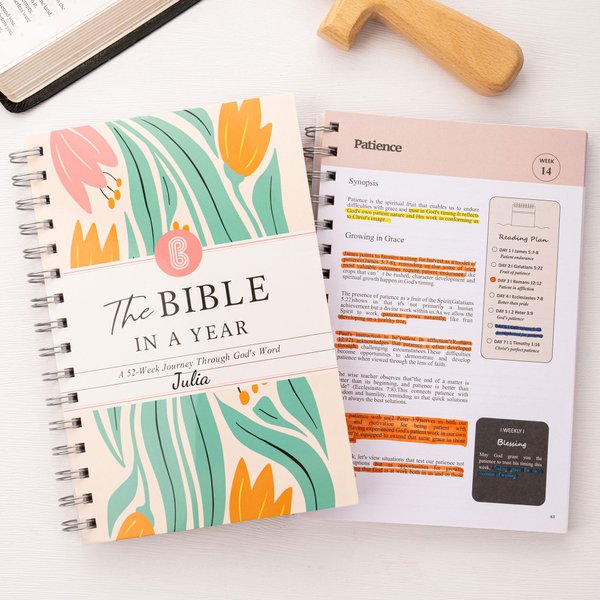 B
The BIBLE
IN A YEAR
A 52-Week Journey Through God's Word
Julia
Patience
WEEK
14
Synopsis
Patience is the spiritual fruit that enables us to endure
difficulties with grace and trust in God's timing.It reflects
God's own patient nature and His work in conforming us
to Christ's image.
Growing in Grace
James points to farmers waiting for harvest as a model of
patience(James 5:7-8), reminding us that some of life's
most valuable outcomes require patient endurance.
crops that can' t be rushed, character development and
spiritual growth happen in God's timing.
The presence of patience as a fruit of the Spirit(Galatians
5:22)shows us that it's not primarily a human
achievement but a divine work within us.As we allow the
Spirit to work, patience grows naturally, like fruit
developing on a healthy tree.
Paul's instruction to be patient in affliction(Romans
12:12) acknowledges that patience is often developed
through challenging circumstances.These difficulties
become opportunities to demonstrate and develop
patience when viewed through the lens of faith.
The wise teacher observes that"the end of a matter is
better than its beginning, and patience is better than
(Ecclesiastes 7:8).This connects patience with
wisdom and humility, reminding us that quick solutions
aren't always the best solutions.
patience with us(2 Peter 3:9)serves as both our
and motivation for being patient with
Having experienced God's patient work in our own
we're equipped to extend that same grace to those
week, let's view situations that test our patience not
but as opportunities for growth,
that God is at work both in us and in those
Reading Plan
DAY 1 I James 5:7-8
Patient endurance
DAY 2 I Galatians 5:22
Fruit of patience
DAY 3 I Romans 12:12
Patient in affliction
DAY 4 I Ecclesiastes 7:8
Better than pride
DAY 5 I 2 Peter 3:9
God's patience
DAY 7 I 1 Timothy 1:16
Christ's perfect patience
I WEEKLY I
Blessing
May God grant you the
patience to trust his timing this
week,
63